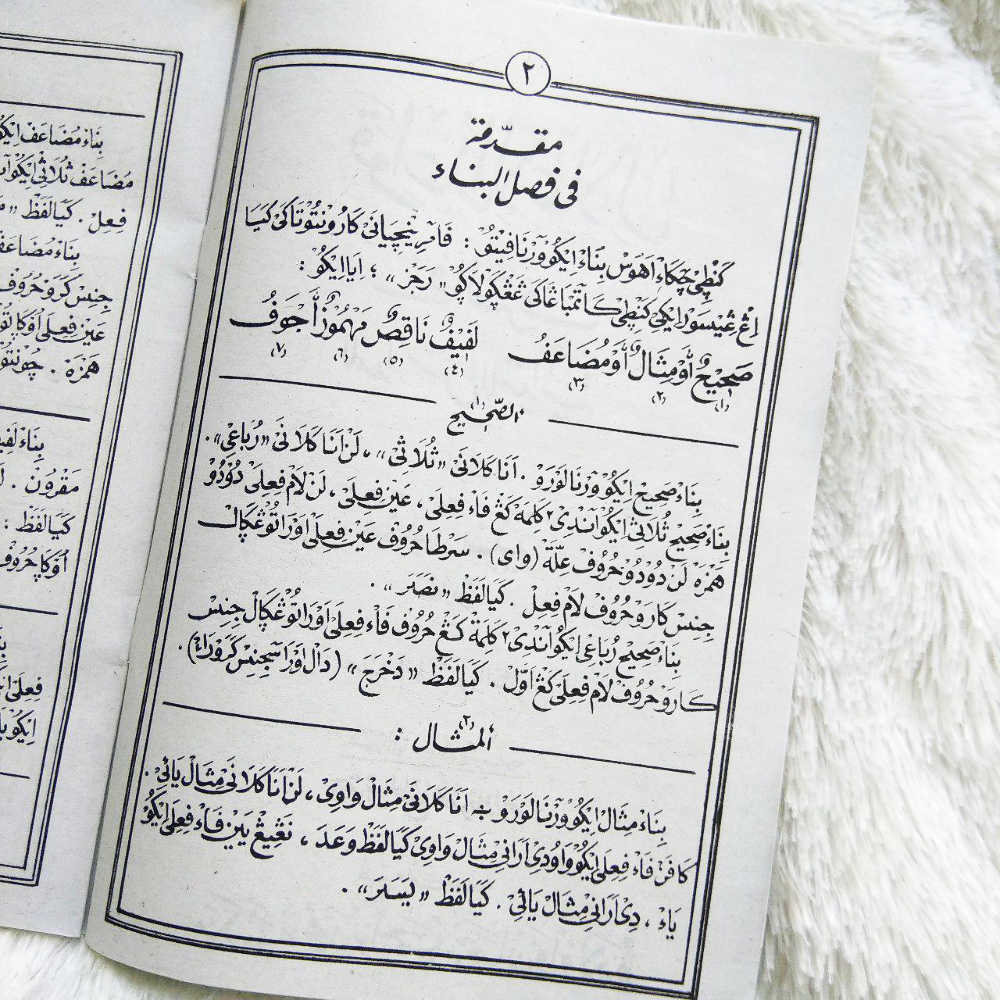 ٢
مقدّمة
فى فصل البناء
كنطي چكاء اهوس بناء ايكو ورنا فيتو : فامرينچيانى كارو نتوتاكى كيا
اڠ ڠيسور ايكى كنطي كاتمباڠاكى ڠڠكو لاكو « رجز » ؛ اياايكو :
صَحِيْحٌ أَوْ مِثَالٌ أَوْ مُضَاعَفُ لَفِيْفٌ نَاقِصٌ مَهْمُوْزٌ أَجْوَفُ
(١) (٢) (٣) (٤) (٥) (٦) (٧)
الصّحيح (١)
بناء صحيح ايكو ورنا لورو . انا كلانى « ثلاثى » ، لن انا كلانى « رباعى » .
بناء صحيح ثلاثى ايكو اندى٢ كلمة كڠ فاء فعلى ، عين فعلى ، لن لام فعلى دودو
همزه لن دودو حروف علّة (واى) . سرطا حروف عين فعلى اورا توڠݢال
جنس كارو حروف لام فعل . كيا لفظ « نصَرَ » .
بناء صحيح رباعى ايكو اندى٢ كلمة كڠ حروف فاء فعلى اورا توڠݢال جنس
كارو حروف لام فعلى كڠ اوّل . كيا لفظ « دَحْرَجَ » (دال اورا سجنس كرو راء) .
المثال (٢) :
بناء مثال ايكو ورنا لورو ؛ انا كلانى مثال واوى ، لن انا كلانى مثال يائى .
كافن فاء فعلى ايكو واو دى ارانى مثال واوى كيا لفظ وَعَدَ ، نڠيڠ يين فاء فعلى ايكو
ياء ، دى ارانى مثال يائى . كيا لفظ « يسَرَ » .
بناء مضاعف ايكو
مضاعف ثلاثى ايكو
فعل . كيا لفظ «
بناء مضاعف
جنس كرو حروف
عين فعلى اوكا
همزه . چونتو
بناء لفيف
مقرون .
كيا لفظ :
اوكا حروف
فعلى
ايكو